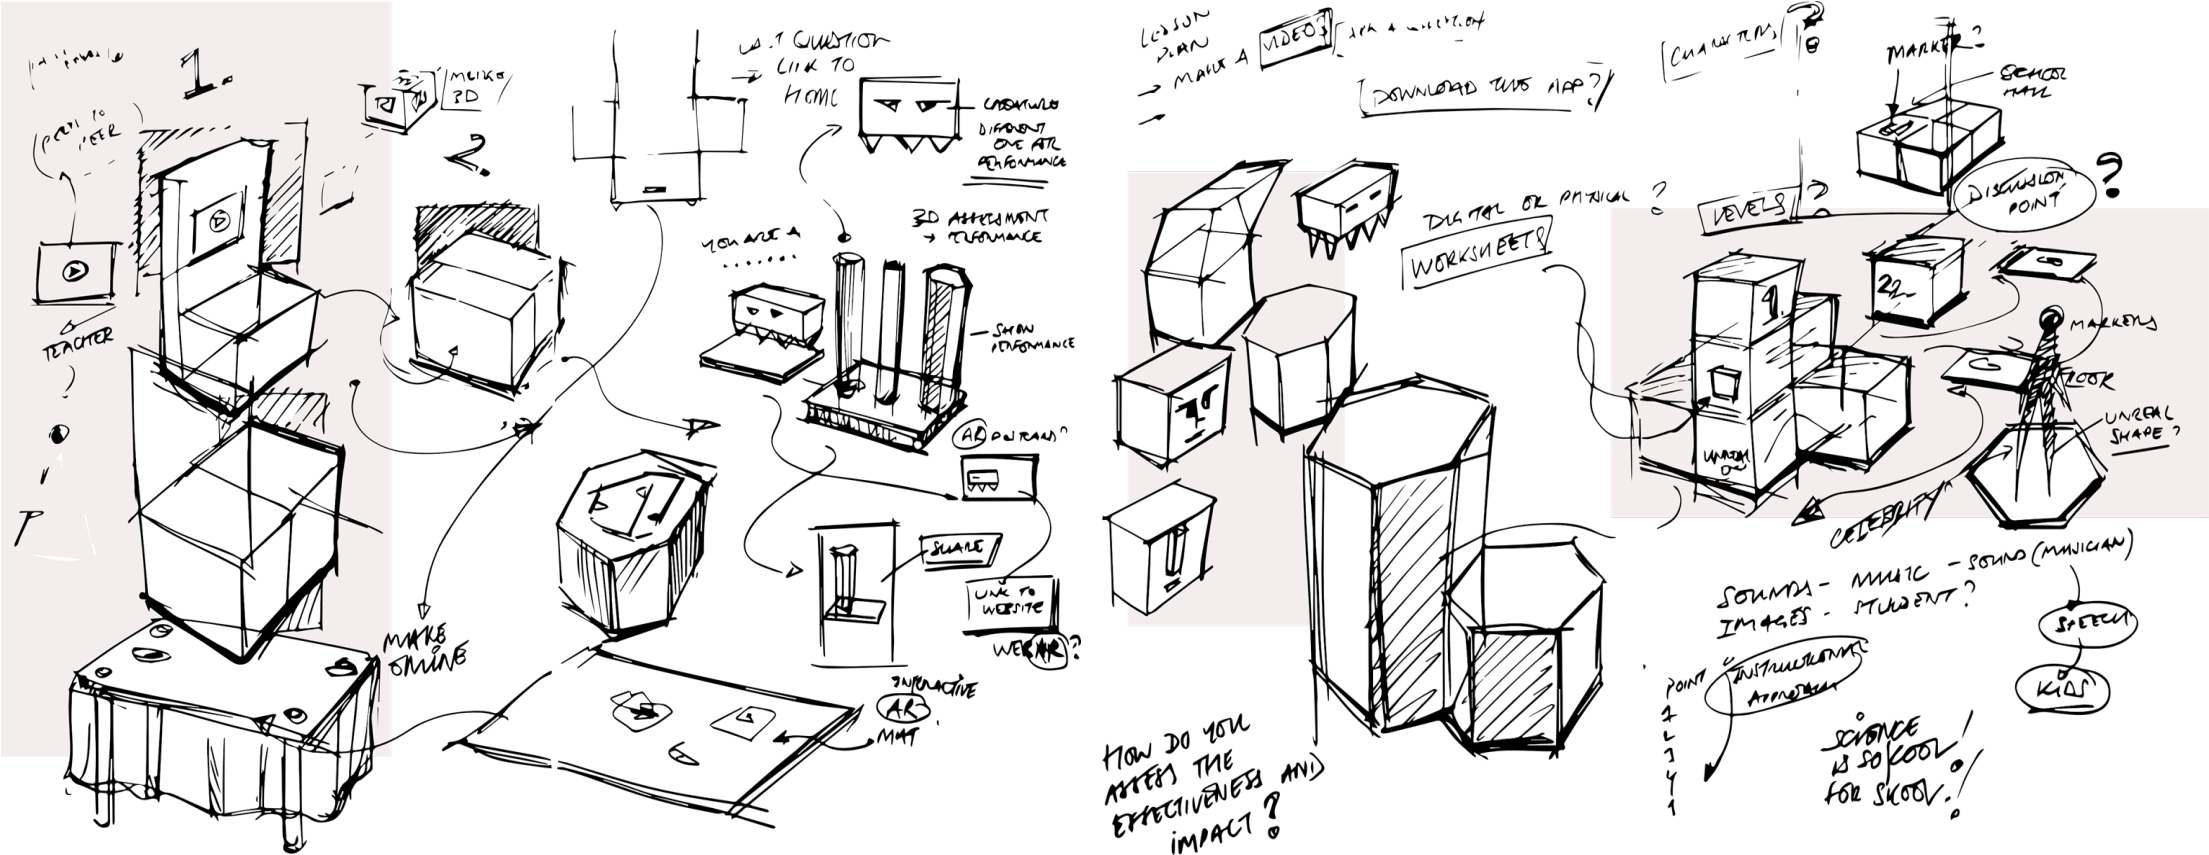 1.
PEER TO
PEER
TEACHER
?
3D
2.
QUESTION
LINK TO
HOME
CREATURE
DIFFERENT
ONE FOR
PERFORMANCE
3D ASSESSMENT
→ PERFORMANCE
YOU ARE A
.......
SHOW
PERFORMANCE
AR ON TABS?
SHARE
LINK TO
WEBSITE
WEB AR?
MAKE
ONLINE
INTERACTIVE
AR
MAT
LESSON
PLAN
→ MAKE A VIDEO?
DOWNLOAD THE APP?
DIGITAL OR PHYSICAL?
WORKSHEETS
HOW DO YOU
ASSESS THE
EFFECTIVENESS AND
IMPACT?
CHARACTERS?
MARKER?
SCHOOL
HALL
DISCUSSION
POINT
?
LEVELS?
1.
22
MARKERS
FLOOR
UNREAL
SHAPE?
CELEBRITY
SOUNDS - MUSIC - SOUND (MUSICIAN)
IMAGES - STUDENT?
SPEECH
KIDS
POINT
INSTRUCTIONAL
APPROACH
1
2
3
4
1
SCIENCE
IS SO KOOL!
FOR SKOOL!